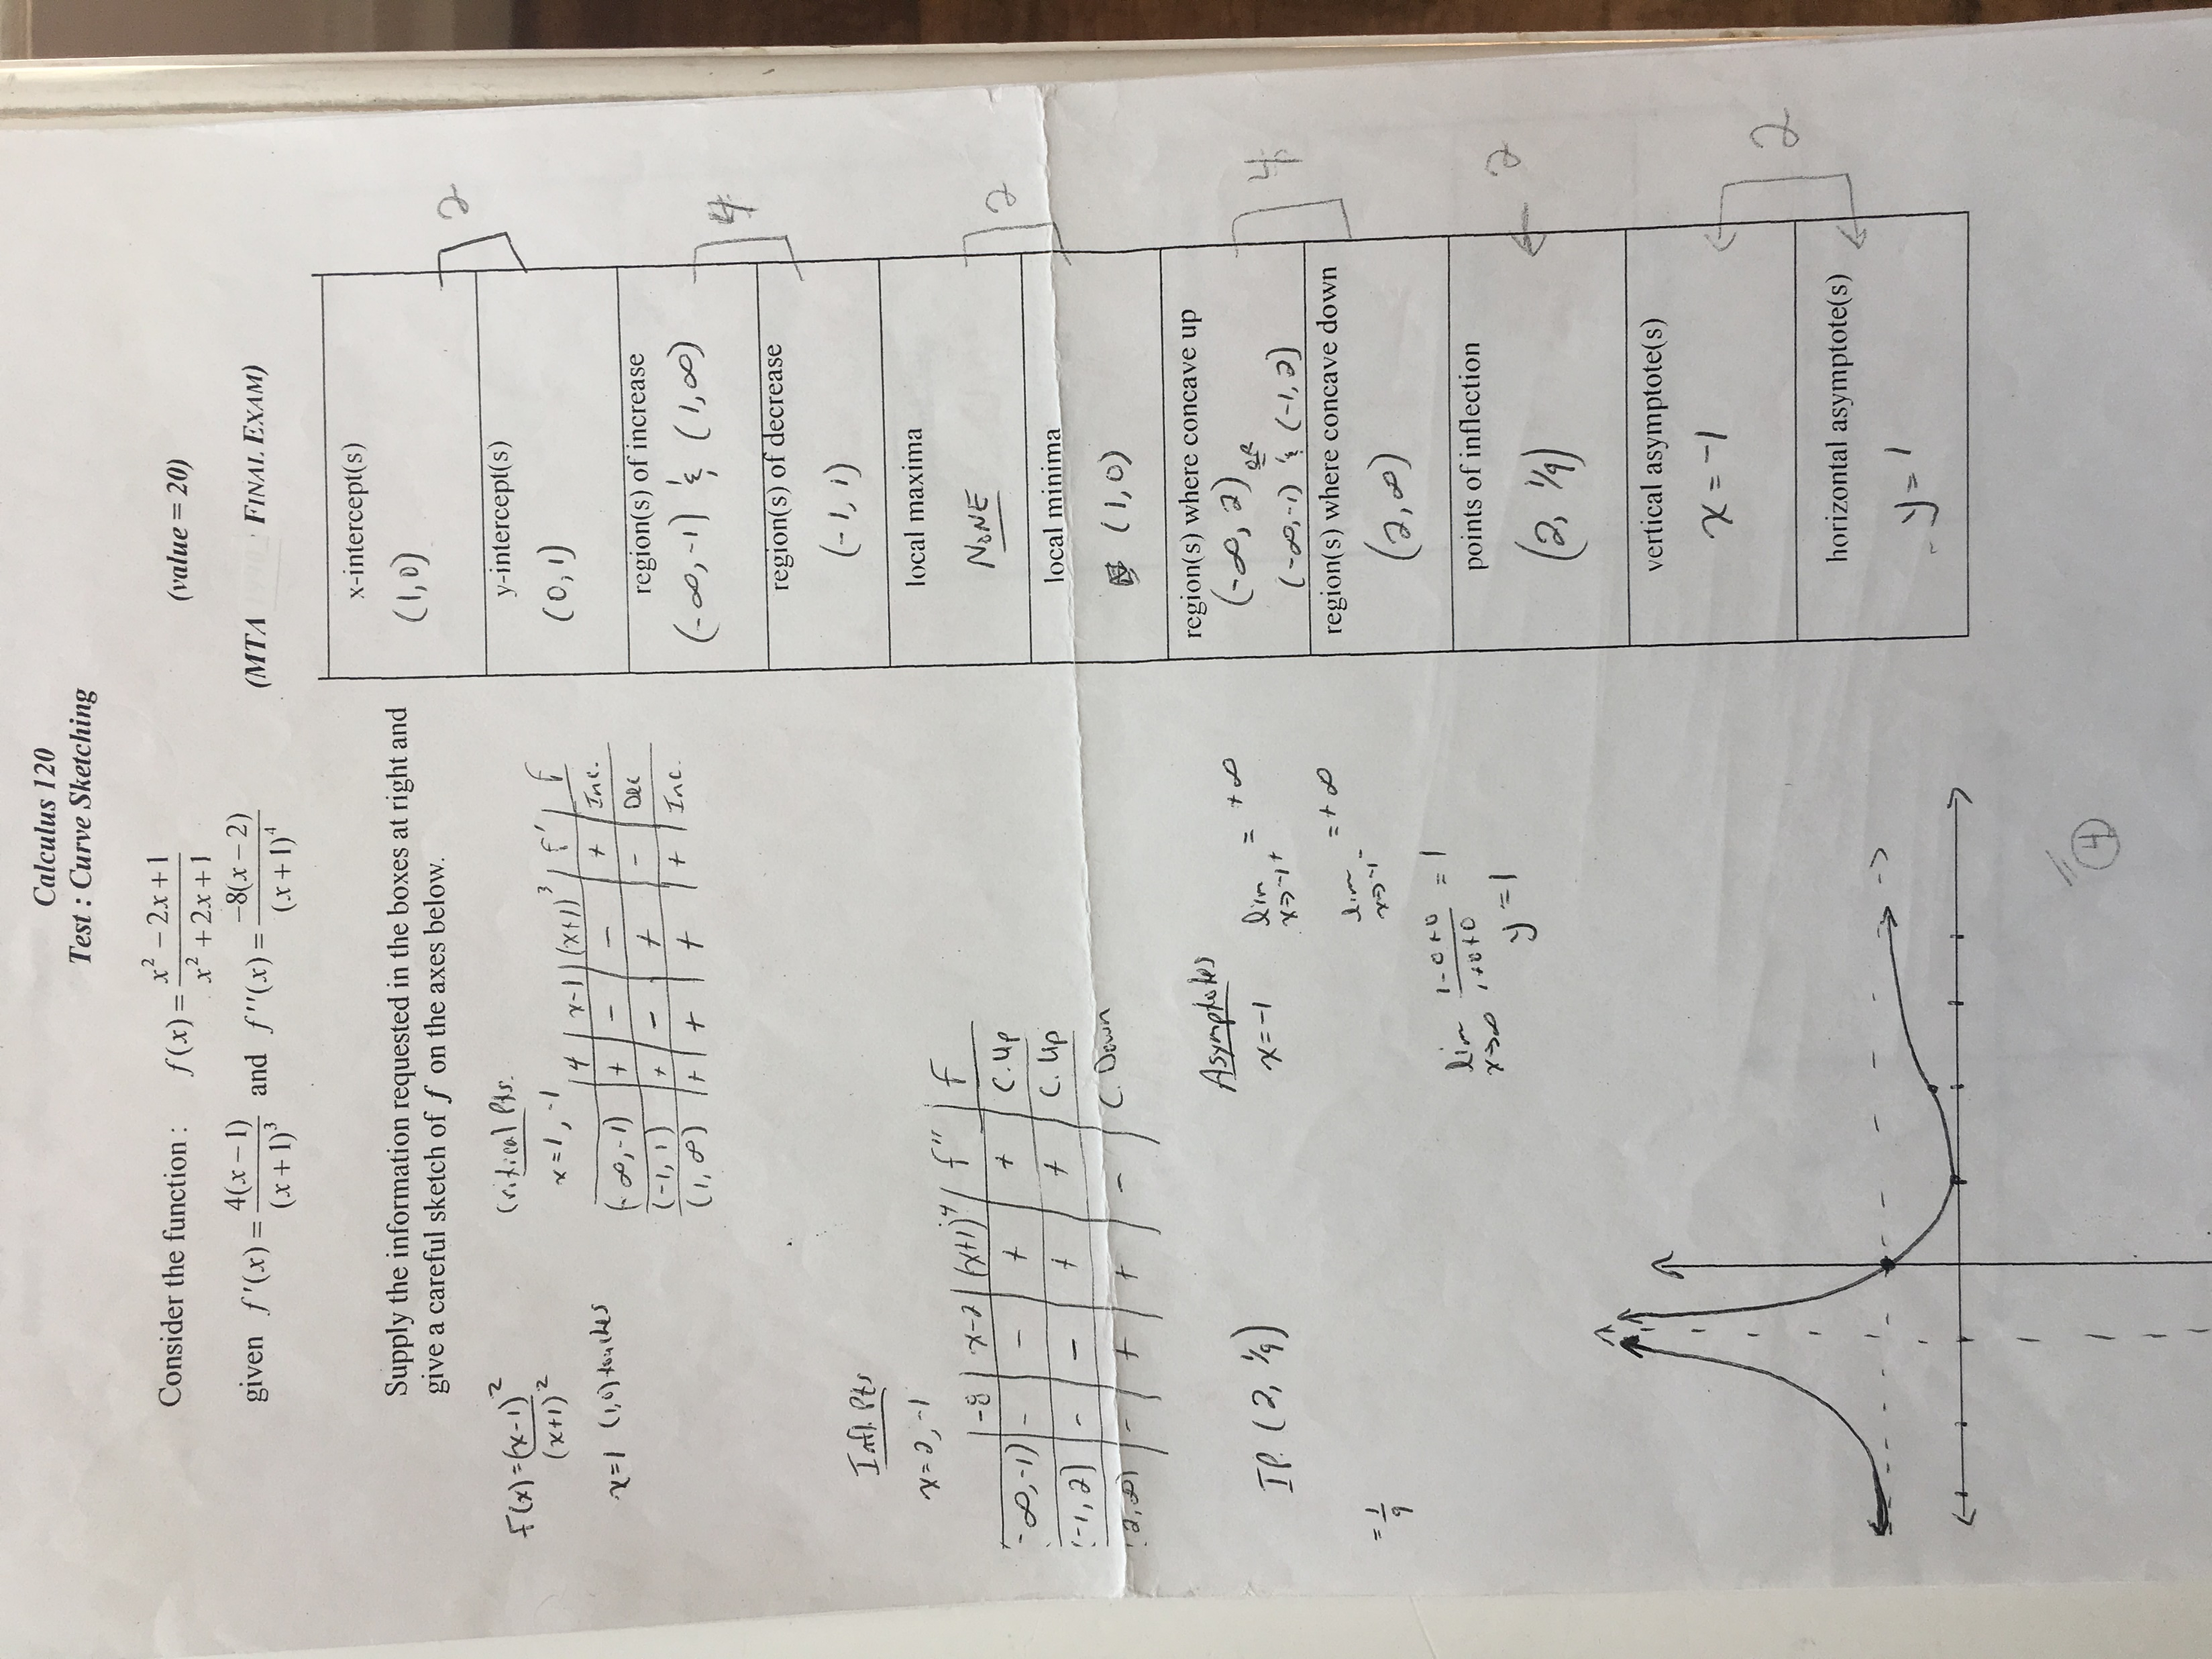 Calculus 120
Test : Curve Sketching
Consider the function : f(x) = (x² − 2x + 1)/(x² + 2x + 1) (value = 20)
given f'(x) = 4(x − 1)/(x + 1)³ and f''(x) = −8(x − 2)/(x + 1)⁴ (MTA FINAL EXAM)
Supply the information requested in the boxes at right and
give a careful sketch of f on the axes below.
f(x) = (x-1)²/(x+1)²
x=1 (1,0) touches
Critical Pts.
x=1, -1
4 | x-1 | (x+1)³ | f' | f
(-∞,-1) | + | - | - | + | Inc.
(-1,1) | + | - | + | - | Dec
(1,∞) | + | + | + | + | Inc.
Infl. Pts
x=2, -1
-8 | x-2 | (x+1)⁴ | f'' | f
-∞,-1) | - | - | + | + | C. Up
(-1,2) | - | - | + | + | C. Up
(2,∞) | - | + | + | - | C. Down
I.P. (2, 1/9)
= 1/9
Asymptotes
x=-1
lim x→-1+ = +∞
lim x→-1- = +∞
lim x→∞ (1-0+0)/(1+0+0) = 1
y=1
4
x-intercept(s)
(1,0)
y-intercept(s)
(0,1)
2
region(s) of increase
(-∞,-1) & (1,∞)
region(s) of decrease
(-1,1)
4
local maxima
NONE
local minima
(1,0)
2
region(s) where concave up
(-∞,2) OR
(-∞,-1) & (-1,2)
region(s) where concave down
(2,∞)
4
points of inflection
(2, 1/9)
2
vertical asymptote(s)
x=-1
horizontal asymptote(s)
y=1
2